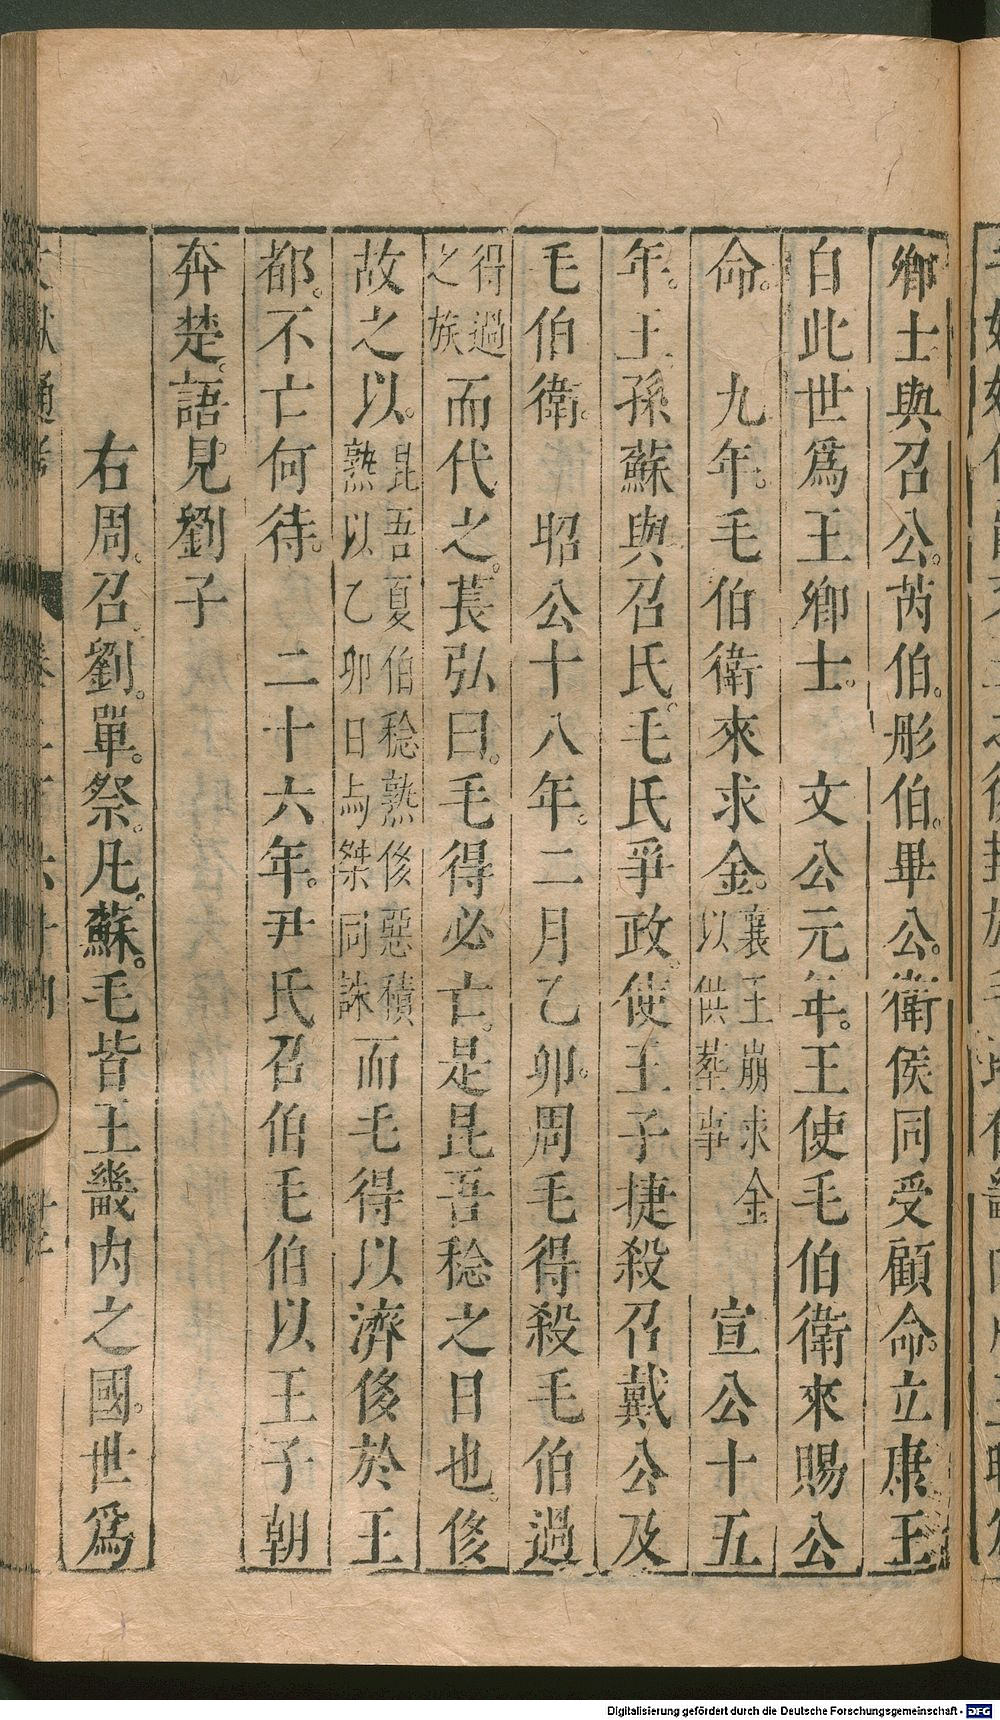 卿士與召公。芮伯。彤伯。畢公。衛侯同受顧命。立康王
自此世爲王卿士。　文公元年。王使毛伯衛來賜公
命。　九年。毛伯衛來求金。襄王崩求金以供葬事　宣公十五
年。王孫蘇與召氏。毛氏爭政。使王子捷殺召戴公及
毛伯衛。　昭公十八年。二月乙卯。周毛得殺毛伯過
得過之族而代之。萇弘曰。毛得必亡。是昆吾稔之日也。侈
故之以。昆吾夏伯稔熟侈惡積熟以乙卯日與桀同誅而毛得以濟侈於王
都。不亡何待。　二十六年。尹氏召伯毛伯以王子朝
奔楚。語見劉子
右周。召。劉。單。祭。凡。蘇。毛皆王畿内之國。世爲
Digitalisierung gefördert durch die Deutsche Forschungsgemeinschaft - DFG